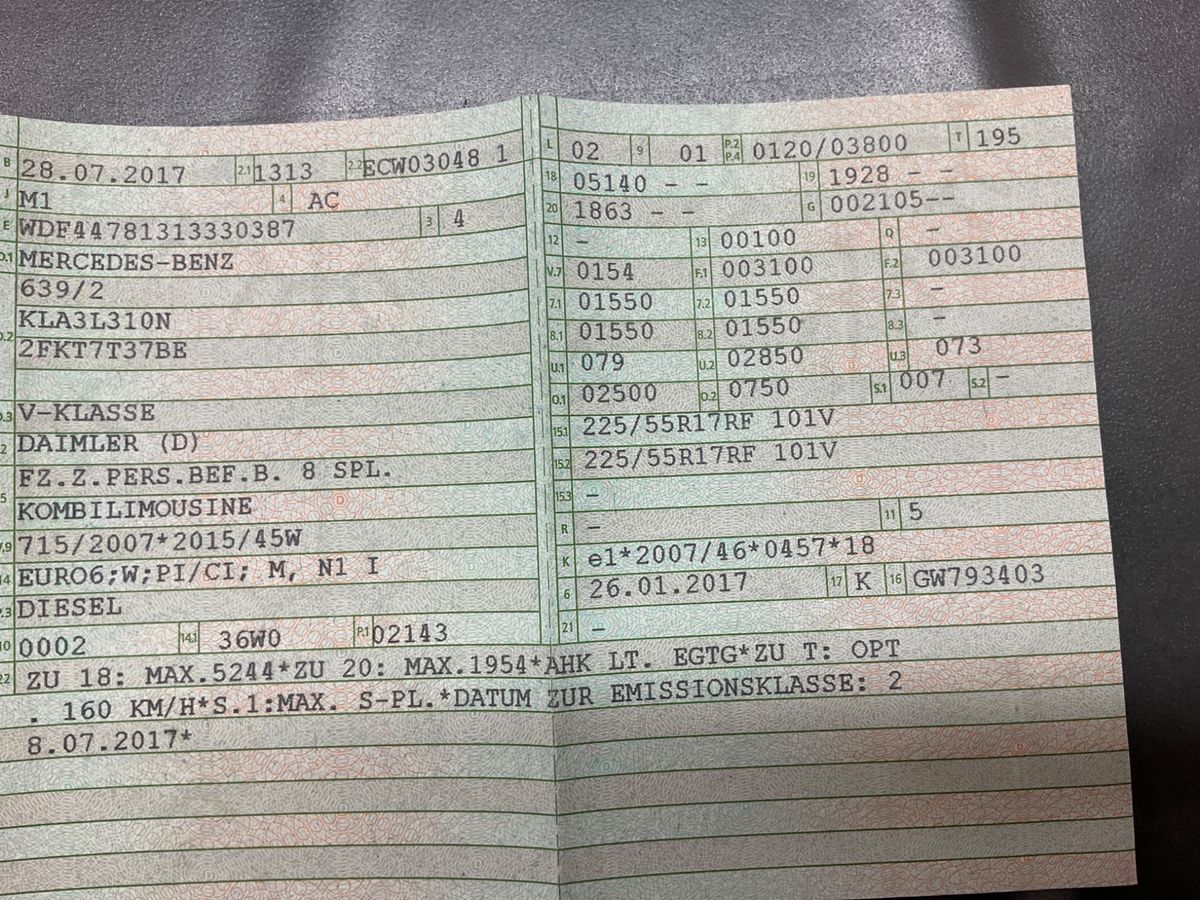 B 28.07.2017 2.1 1313 2.2 ECW03048 1
J M1 4 AC
E WDF44781313330387 3 4
D.1 MERCEDES-BENZ
639/2
D.2 KLA3L310N
2FKT7T37BE
D.3 V-KLASSE
2 DAIMLER (D)
5 FZ.Z.PERS.BEF.B. 8 SPL.
KOMBILIMOUSINE
V.9 715/2007*2015/45W
14 EURO6;W;PI/CI; M, N1 I
P.3 DIESEL
10 0002 14.1 36W0 P.1 02143
L 02 9 01 P.2 P.4 0120/03800 T 195
18 05140 - - 19 1928 - -
20 1863 - - G 002105--
12 - 13 00100 Q -
V.7 0154 F.1 003100 F.2 003100
7.1 01550 7.2 01550 7.3 -
8.1 01550 8.2 01550 8.3 -
U.1 079 U.2 02850 U.3 073
O.1 02500 O.2 0750 S.1 007 S.2 -
15.1 225/55R17RF 101V
15.2 225/55R17RF 101V
15.3 -
R - 11 5
K e1*2007/46*0457*18
6 26.01.2017 17 K 16 GW793403
21 -
22 ZU 18: MAX.5244*ZU 20: MAX.1954*AHK LT. EGTG*ZU T: OPT
. 160 KM/H*S.1:MAX. S-PL.*DATUM ZUR EMISSIONSKLASSE: 2
8.07.2017*